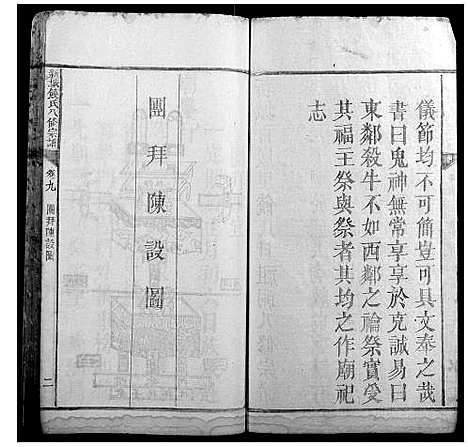 儀節均不可簡豈可具文奉之哉
書曰鬼神無常享享於克誠易曰
東鄰殺牛不如西鄰之禴祭實受
其福王祭與祭者其均之作廟祀
志
團拜陳設圖
氏八修宗譜
卷九
團拜陳設圖
二